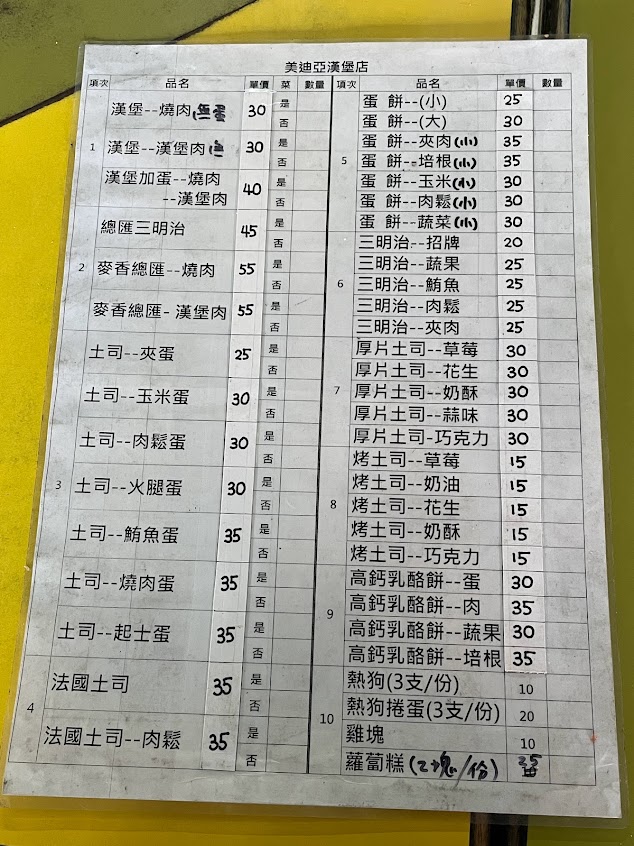 美迪亞漢堡店
項次 品名 單價 菜 數量
1
漢堡--燒肉(無蛋) 30 是 否
漢堡--漢堡肉 30 是 否
漢堡加蛋--燒肉
--漢堡肉 40 是 否
2
總匯三明治 45 是 否
麥香總匯--燒肉 55 是 否
麥香總匯-漢堡肉 55 是 否
3
土司--夾蛋 25 是 否
土司--玉米蛋 30 是 否
土司--肉鬆蛋 30 是 否
土司--火腿蛋 30 是 否
土司--鮪魚蛋 35 是 否
土司--燒肉蛋 35 是 否
土司--起士蛋 35 是 否
4
法國土司 35 是 否
法國土司--肉鬆 35 是 否
項次 品名 單價 數量
5
蛋餅--(小) 25
蛋餅--(大) 30
蛋餅--夾肉(小) 35
蛋餅--培根(小) 35
蛋餅--玉米(小) 30
蛋餅--肉鬆(小) 30
蛋餅--蔬菜(小) 30
6
三明治--招牌 20
三明治--蔬果 25
三明治--鮪魚 25
三明治--肉鬆 25
三明治--夾肉 25
7
厚片土司--草莓 30
厚片土司--花生 30
厚片土司--奶酥 30
厚片土司--蒜味 30
厚片土司-巧克力 30
8
烤土司--草莓 15
烤土司--奶油 15
烤土司--花生 15
烤土司--奶酥 15
烤土司--巧克力 15
9
高鈣乳酪餅--蛋 30
高鈣乳酪餅--肉 35
高鈣乳酪餅--蔬果 30
高鈣乳酪餅--培根 35
10
熱狗(3支/份) 10
熱狗捲蛋(3支/份) 20
雞塊 10
蘿蔔糕(2塊/份) 25